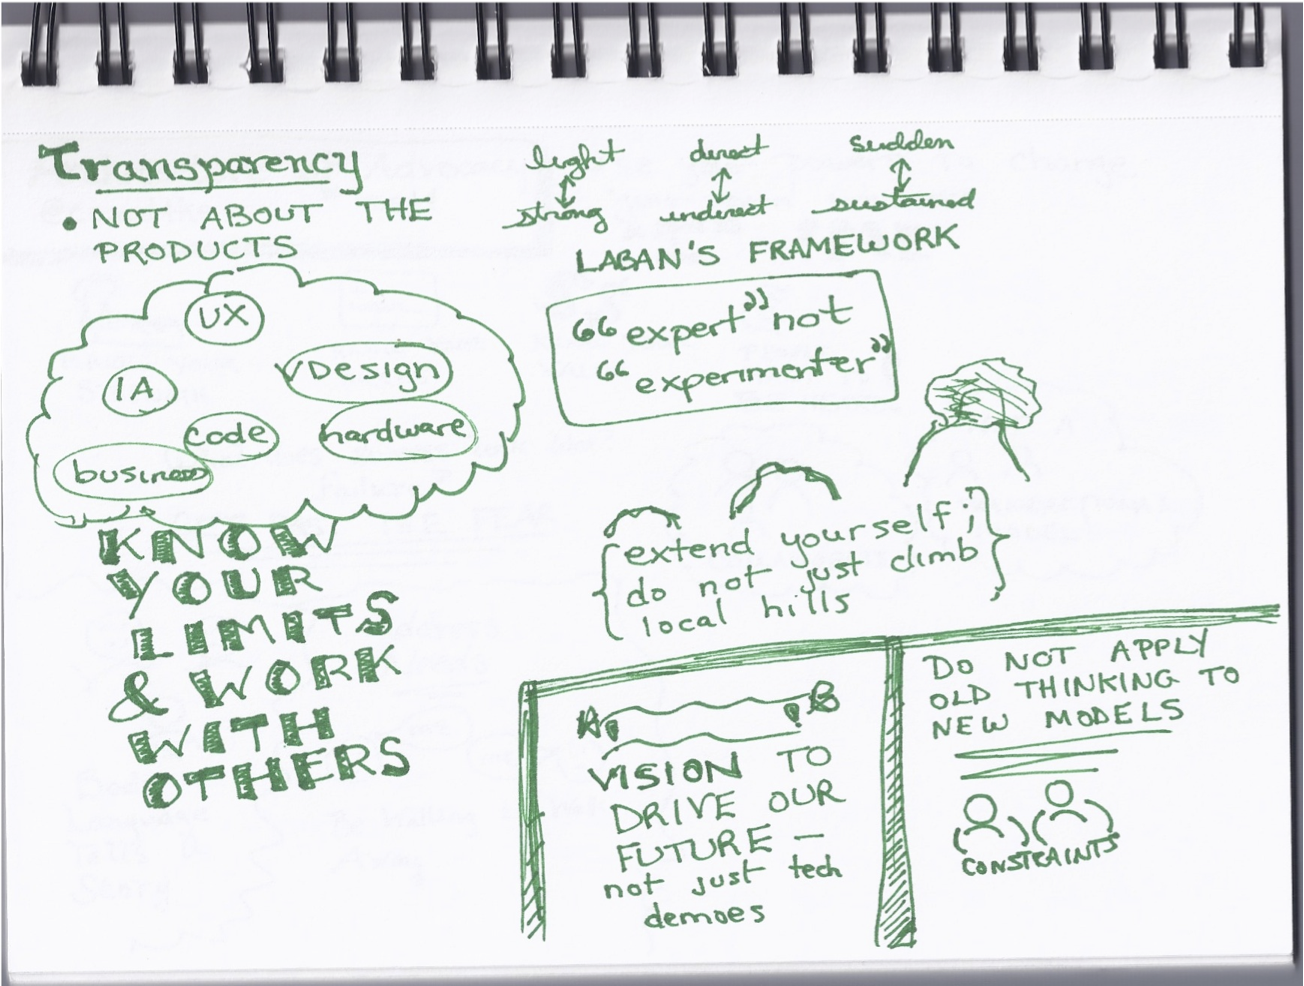 Transparency
• NOT ABOUT THE
PRODUCTS
UX
IA
VDesign
code
hardware
business
KNOW
YOUR
LIMITS
& WORK
WITH
OTHERS
light direct sudden
strong indirect sustained
LABAN'S FRAMEWORK
"expert" not
"experimenter"
{extend yourself;}
do not just climb
local hills
A B
VISION TO
DRIVE OUR
FUTURE —
not just tech
demoes
DO NOT APPLY
OLD THINKING TO
NEW MODELS
CONSTRAINTS